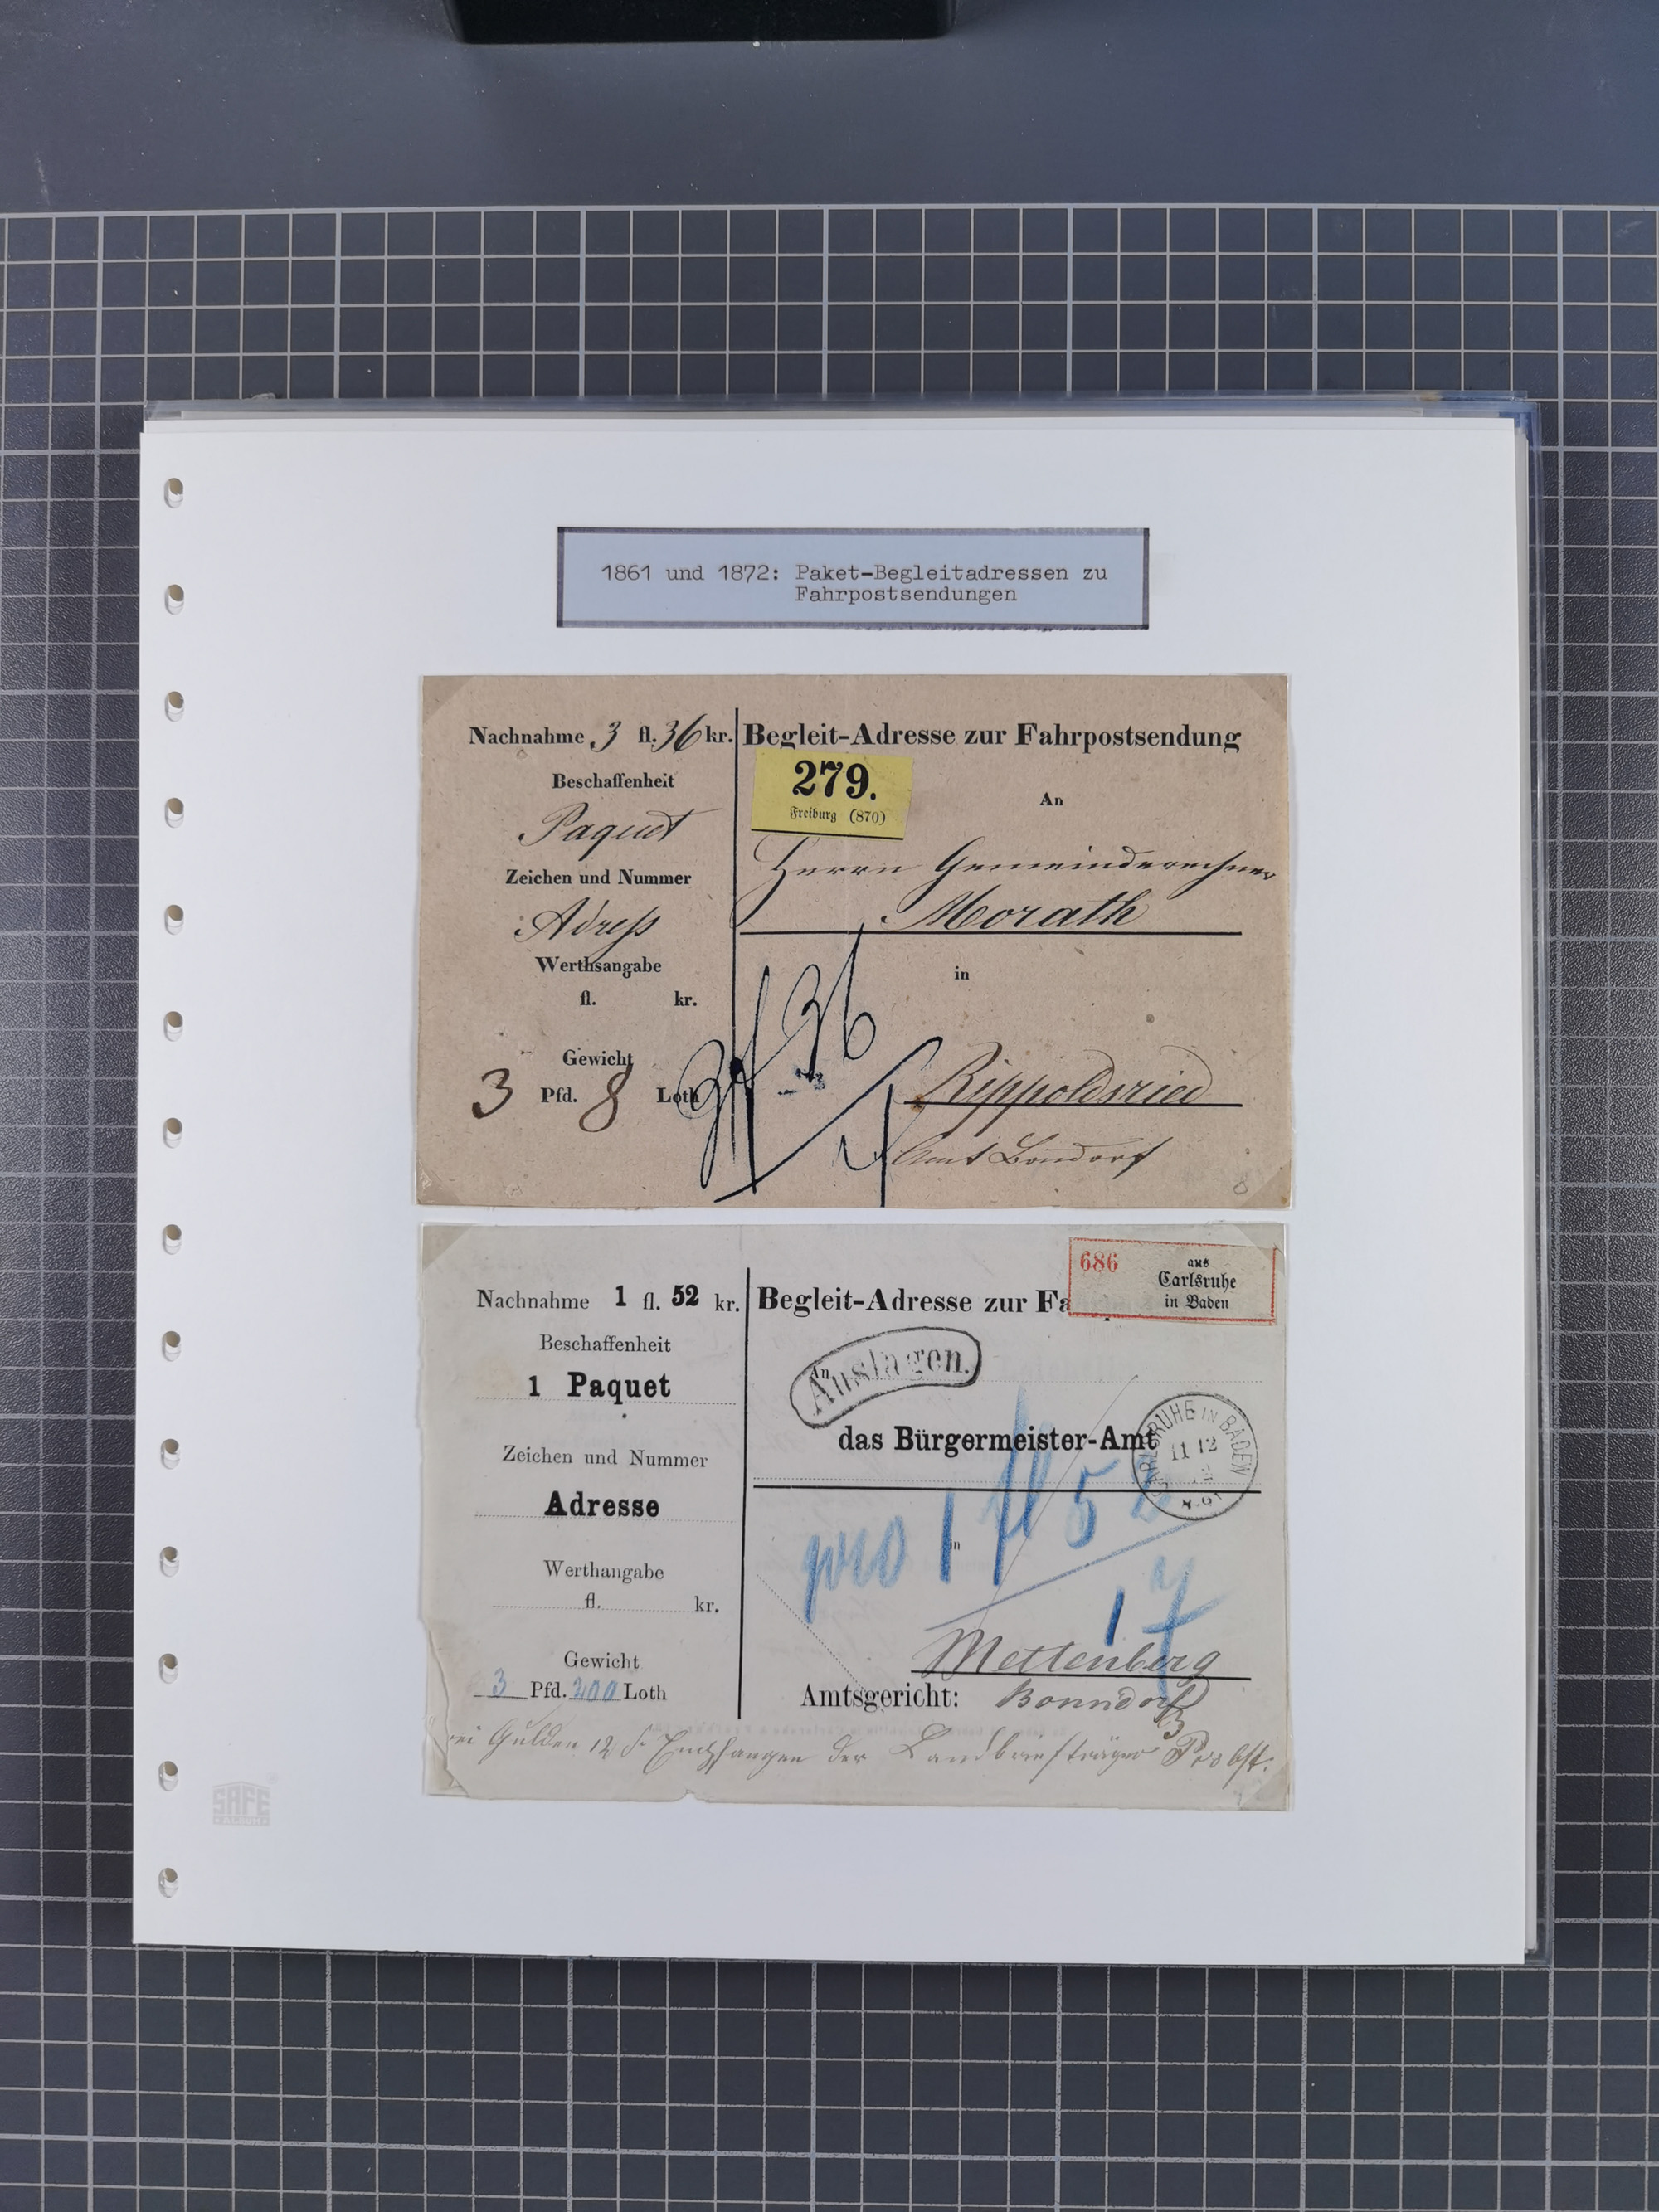 1861 und 1872: Paket-Begleitadressen zu
Fahrpostsendungen
Nachnahme 3 fl. 36 kr.
Beschaffenheit
Paquet
Zeichen und Nummer
Adress
Werthsangabe
fl. kr.
Gewicht
3 Pfd. 8 Loth
Begleit-Adresse zur Fahrpostsendung
279.
Freiburg (870)
An
Herrn Gemeinderechner
Morath
in
3 f 36
Rippoldsried
Amt Bondorf
Nachnahme 1 fl. 52 kr.
Beschaffenheit
1 Paquet
Zeichen und Nummer
Adresse
Werthangabe
fl. kr.
Gewicht
3 Pfd. 200 Loth
Begleit-Adresse zur Fa
686
aus
Carlsruhe
in Baden
An
Auslagen.
das Bürgermeister-Amt
CARLSRUHE IN BADEN
11 12
in
1 fl 52
17
Mettenberg
Amtsgericht: Bonndorf
Gulden 12 Empfangen der Landbriefträger Probst.
SAFE
ALBUM